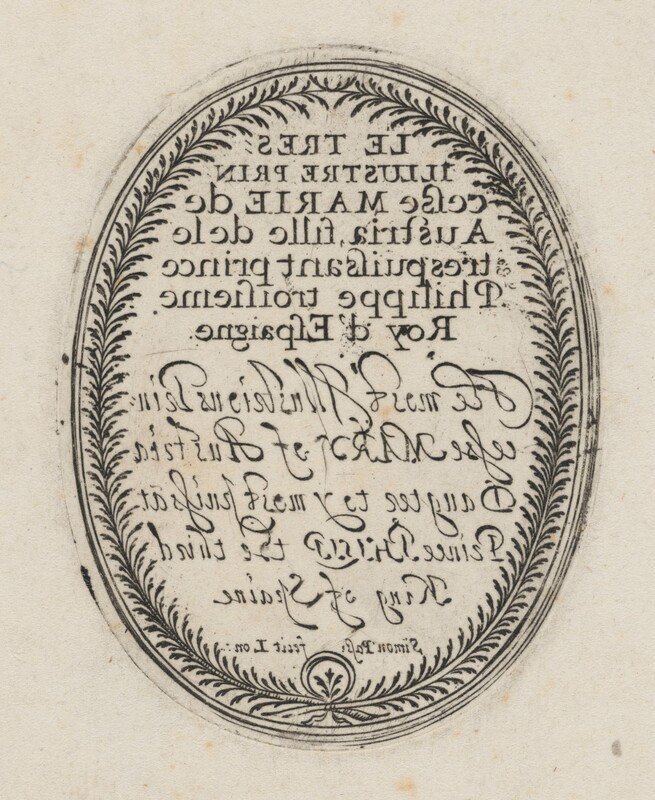 LE TRES:
ILLUSTRE PRIN
ceße MARIE de
Austria, fille de le
trespuißant prince
Philippe troiſieme.
Roy d'Eſpaigne.
The most Illustrious Prin-
ceſse MARY of Austria
Daugter to y most puißāt
Prince PHILIP the third
King of Spaine
Simon Paße fecit Lon: